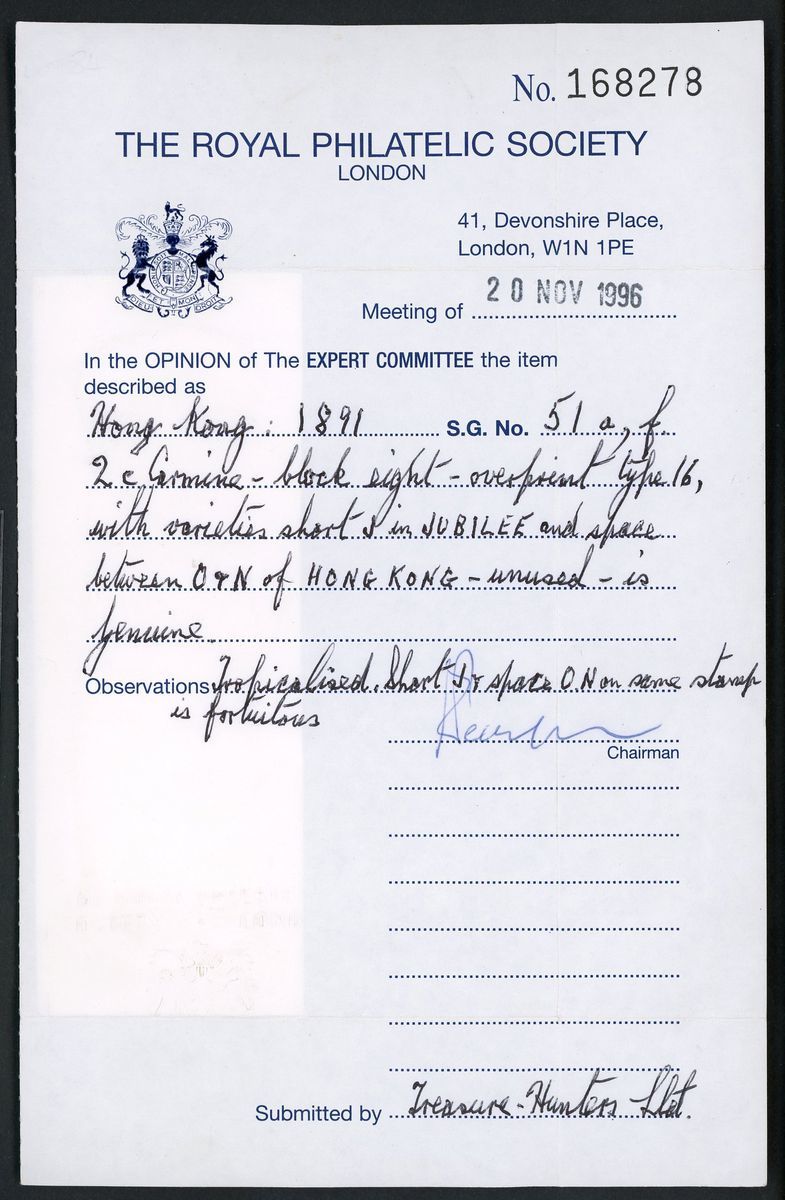 No. 168278
THE ROYAL PHILATELIC SOCIETY
LONDON
41, Devonshire Place,
London, W1N 1PE
Meeting of 20 NOV 1996
In the OPINION of The EXPERT COMMITTEE the item
described as
Hong Kong: 1891 S.G. No. 51 a, f.
2c Carmine - block eight - overprint type 16,
with varieties short J in JUBILEE and space
between O & N of HONG KONG - unused - is
genuine.
Observations Tropicalised. Short J & space O N on same stamp
is fortuitous
Chairman
Submitted by Treasure-Hunters Ltd.